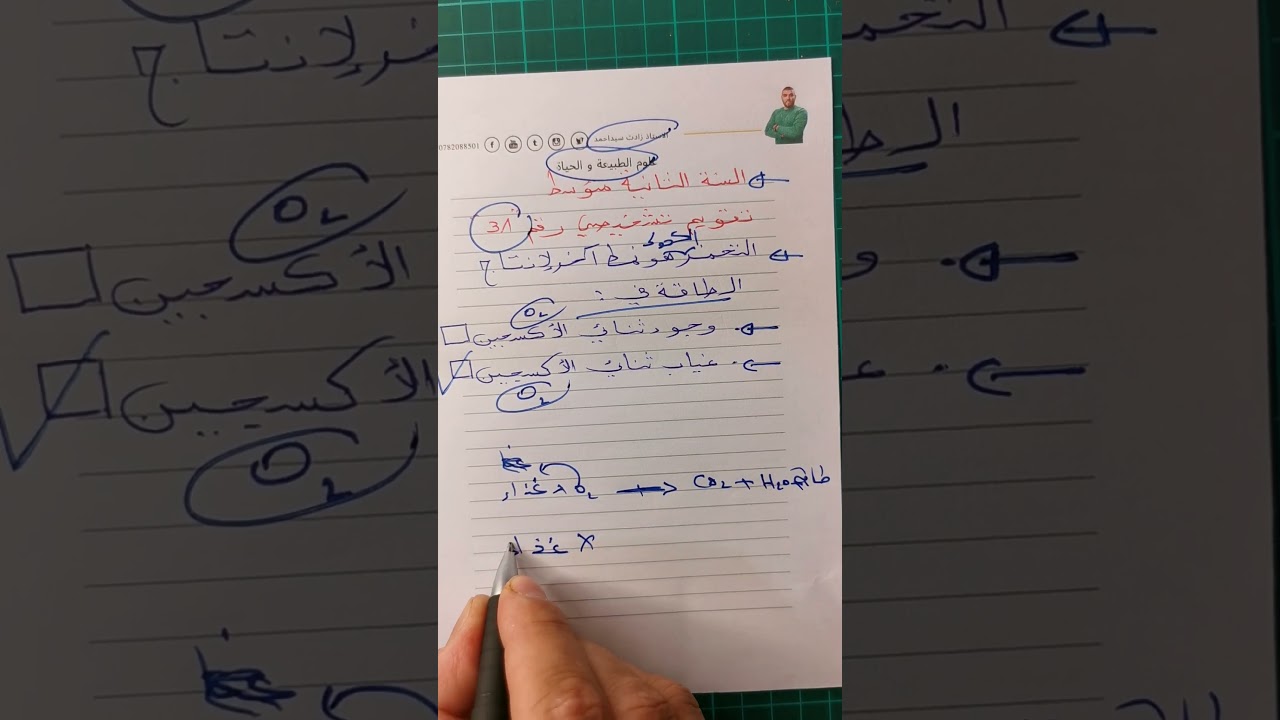 الأستاذ زادت سيداحمد
0782088501
علوم الطبيعة و الحياة
السنة الثانية متوسط
تقويم تشخيصي رقم 38
التخمر الكحولي هو نمط آخر لإنتاج
الطاقة في :
O2
وجود ثنائي الأكسجين
غياب ثنائي الأكسجين
O2
غذاء + O2 → CO2 + H2O + طاقة
غذاء X